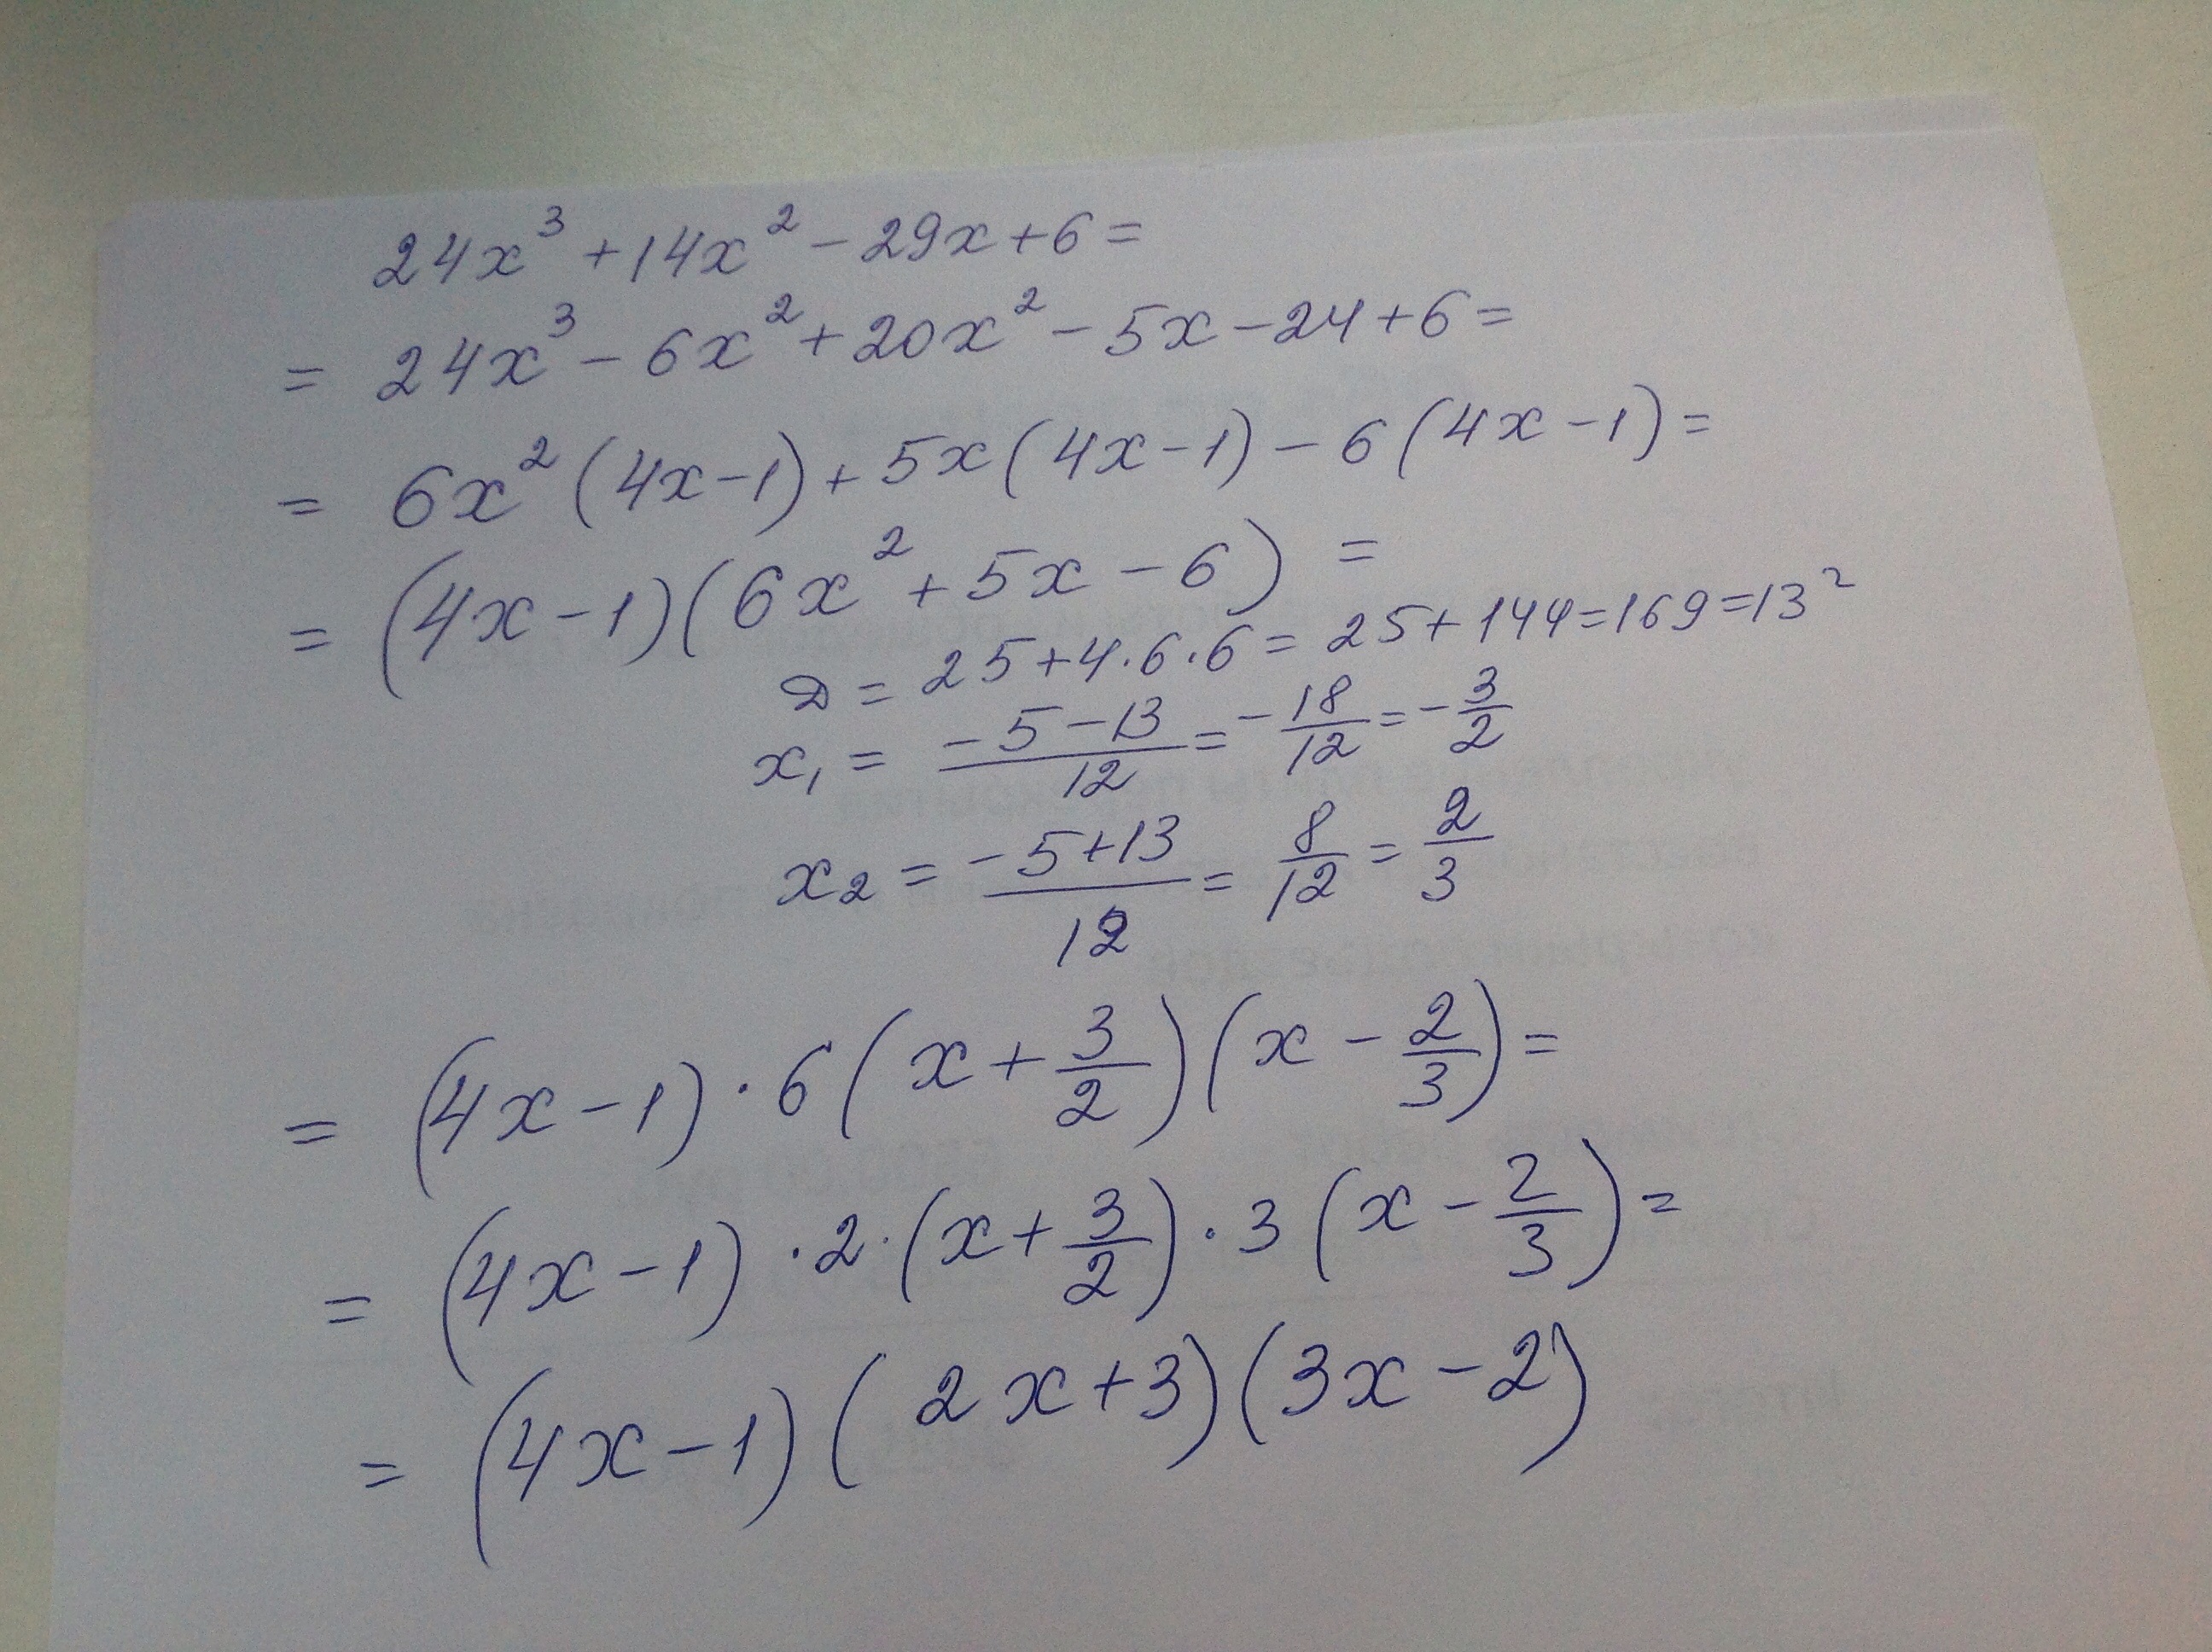 24x³ + 14x² - 29x + 6 =
= 24x³ - 6x² + 20x² - 5x - 24 + 6 =
= 6x² (4x - 1) + 5x (4x - 1) - 6 (4x - 1) =
= (4x - 1) (6x² + 5x - 6) =
D = 25 + 4·6·6 = 25 + 144 = 169 = 13²
x₁ = (-5 - 13)/12 = -18/12 = -3/2
x₂ = (-5 + 13)/12 = 8/12 = 2/3
= (4x - 1) · 6 (x + 3/2) (x - 2/3) =
= (4x - 1) · 2 · (x + 3/2) · 3 (x - 2/3) =
= (4x - 1) (2x + 3) (3x - 2)